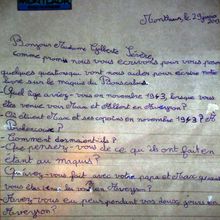 Montbazens, le 29 janvier
Bonjour Madame Colberte Livère,
comme promis nous vous écrivons pour vous poser
quelques questions qui vont nous aider pour écrire notre
livre sur le maquis du
Quel âge aviez-vous en novembre 1943, lorsque vous
êtes venue voir Max et Albert en Aveyron?
Où étaient Max et ses copains en novembre 1943?
Comment dormaient-ils?
Que pensez-vous de ce qu'ils ont fait en
étant au maquis?
Qu'avez-vous fait avec votre papa et Max quand vous
êtes venu les voir en Aveyron?
Avez-vous eu peur pendant vos deux jours en
Aveyron?